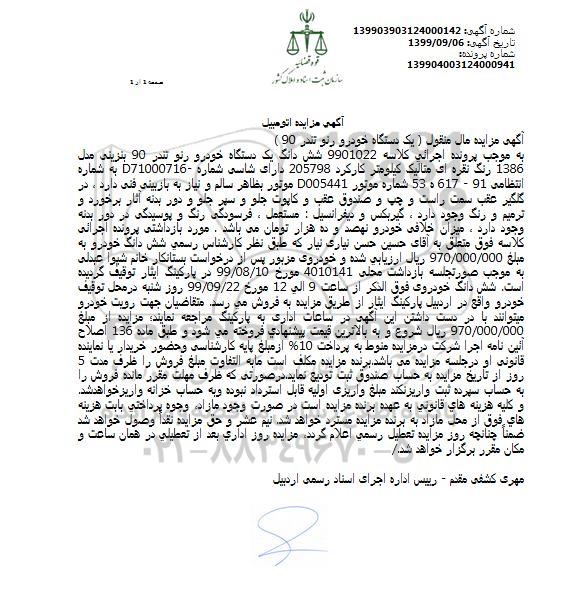 شماره آگهی: 139903903124000142
تاریخ آگهی: 1399/09/06
شماره پرونده:
139904003124000941
قوه قضائیه
سازمان ثبت اسناد و املاک کشور
صفحه 1 از 1
آگهی مزایده اتومبیل
آگهی مزایده مال منقول ( یک دستگاه خودرو رنو تندر 90 )
به موجب پرونده اجرائی کلاسه 9901022 شش دانگ یک دستگاه خودرو رنو تندر 90 بنزینی مدل
1386 رنگ نقره ای متالیک کیلومتر کارکرد 205798 دارای شاسی شماره -D71000716 به شماره
انتظامی 91 - 617 ه 53 شماره موتور D005441 موتور بظاهر سالم و نیاز به بازبینی فنی دارد . در
گلگیر عقب سمت راست و چپ و صندوق عقب و کاپوت جلو و سپر جلو و دور بدنه آثار برخورد و
ترمیم و رنگ وجود دارد ، گیربکس و دیفرانسیل : مستعمل ، فرسودگی رنگ و پوسیدگی در دور بدنه
وجود دارد ، میزان خلافی خودرو نهصد و ده هزار تومان می باشد . مورد بازداشتی پرونده اجرائی
کلاسه فوق متعلق به آقای حسین حسن نیاری نیار که طبق نظر کارشناس رسمی شش دانگ خودرو به
مبلغ 970/000/000 ریال ارزیابی شده و خودروی مزبور پس از درخواست بستانکار خانم شیوا عبدلی
به موجب صورتجلسه بازداشت محلی 4010141 مورخ 99/08/10 در پارکینگ ایثار توقیف گردیده
است. شش دانگ خودروی فوق الذکر از ساعت 9 الی 12 مورخ 99/09/22 روز شنبه درمحل توقیف
خودرو واقع در اردبیل پارکینگ ایثار از طریق مزایده به فروش می رسد. متقاضیان جهت رویت خودرو
میتوانند با در دست داشتن این آگهی در ساعات اداری به پارکینگ مراجعه نمایند، مزایده از مبلغ
970/000/000 ریال شروع و به بالاترین قیمت پیشنهادی فروخته می شود و طبق ماده 136 اصلاح
آئین نامه اجرا شرکت درمزایده منوط به پرداخت 10% ازمبلغ پایه کارشناسی وحضور خریدار یا نماینده
قانونی او درجلسه مزایده می باشد.برنده مزایده مکلف است مابه التفاوت مبلغ فروش را ظرف مدت 5
روز از تاریخ مزایده به حساب صندوق ثبت تودیع نماید.درصورتی که ظرف مهلت مقرر مانده فروش را
به حساب سپرده ثبت واریزنکند مبلغ واریزی اولیه قابل استرداد نبوده وبه حساب خزانه واریزخواهدشد.
و کلیه هزینه های قانونی به عهده برنده مزایده است در صورت وجود مازاد، وجوه پرداختی بابت هزینه
های فوق از محل مازاد به برنده مزایده مسترد خواهد شد. نیم عشر و حق مزایده نقداً وصول خواهد شد
ضمناً چنانچه روز مزایده تعطیل رسمی اعلام گردد، مزایده روز اداری بعد از تعطیلی در همان ساعت و
مکان مقرر برگزار خواهد شد./
مهری کشفی مقدم - رییس اداره اجرای اسناد رسمی اردبیل
۰۲۱-۸۸۳۴۹۶۷۰-۵